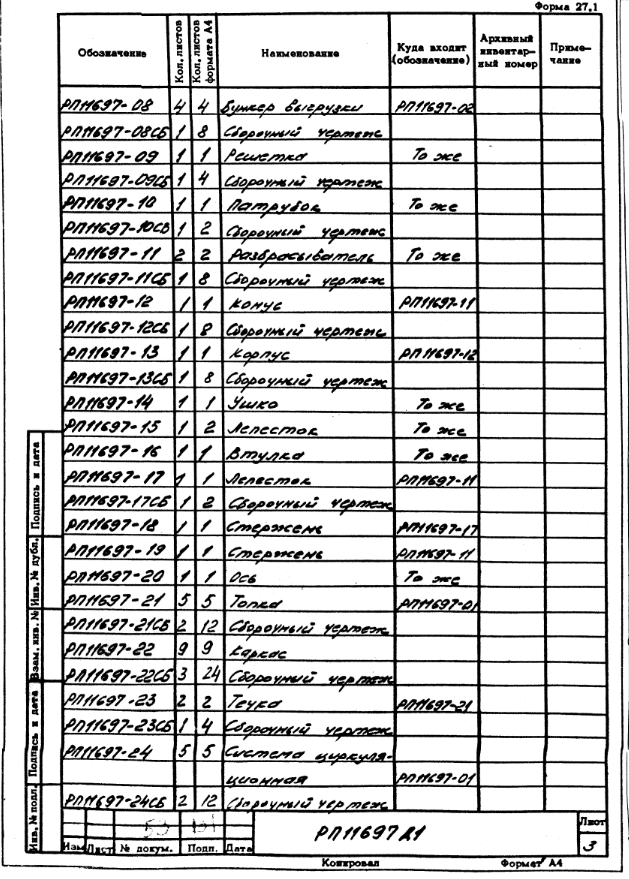 Форма 27.1
Обозначение Кол. листов Кол. листов формата А4 Наименование Куда входит (обозначение) Архивный инвентарный номер Примечание
РП11697-08 4 4 Бункер выгрузки РП11697-02
РП11697-08СБ 1 8 Сборочный чертеж
РП11697-09 1 1 Решетка То же
РП11697-09СБ 1 4 Сборочный чертеж
РП11697-10 1 1 Патрубок То же
РП11697-10СБ 1 2 Сборочный чертеж
РП11697-11 2 2 Разбрасыватель То же
РП11697-11СБ 1 8 Сборочный чертеж
РП11697-12 1 1 Конус РП11697-11
РП11697-12СБ 1 8 Сборочный чертеж
РП11697-13 1 1 Корпус РП11697-12
РП11697-13СБ 1 8 Сборочный чертеж
РП11697-14 1 1 Ушко То же
РП11697-15 1 2 Лепесток То же
РП11697-16 1 1 Втулка То же
РП11697-17 1 1 Лепесток РП11697-11
РП11697-17СБ 1 2 Сборочный чертеж
РП11697-18 1 1 Стержень РП11697-17
РП11697-19 1 1 Стержень РП11697-11
РП11697-20 1 1 Ось То же
РП11697-21 5 5 Топка РП11697-01
РП11697-21СБ 2 12 Сборочный чертеж
РП11697-22 9 9 Каркас
РП11697-22СБ 3 24 Сборочный чертеж
РП11697-23 2 2 Течка РП11697-21
РП11697-23СБ 1 4 Сборочный чертеж
РП11697-24 5 5 Система циркуля-
ционная РП11697-01
РП11697-24СБ 2 12 Сборочный чертеж
Инв. № подл. Подпись и дата Взам. инв. № Инв. № дубл. Подпись и дата
Изм Лист № докум. Подп. Дата
РП11697Д1
Лист
3
Копировал Формат А4